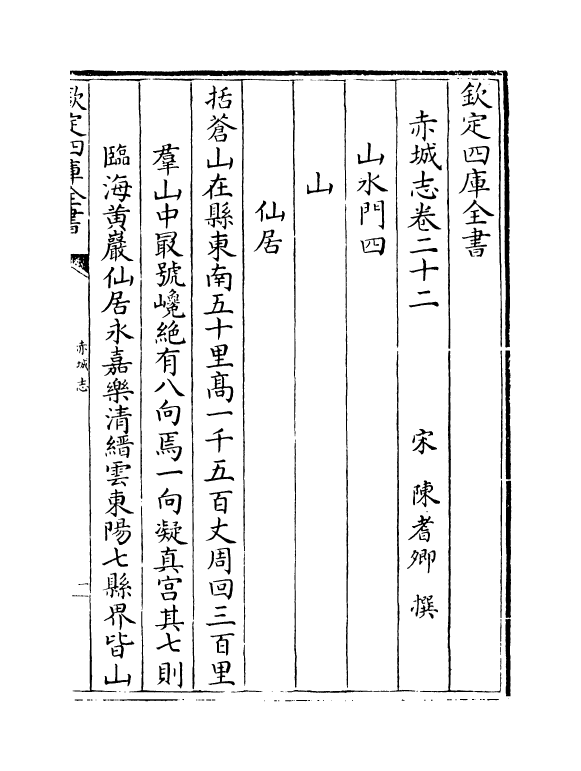 欽定四庫全書
赤城志卷二十二
宋 陳耆卿 撰
山水門四
山
仙居
括蒼山在縣東南五十里髙一千五百丈周回三百里
羣山中最號巉絶有八向焉一向凝真宫其七則
臨海黄巖仙居永嘉樂清縉雲東陽七縣界皆山
欽定四庫全書
赤城志
一